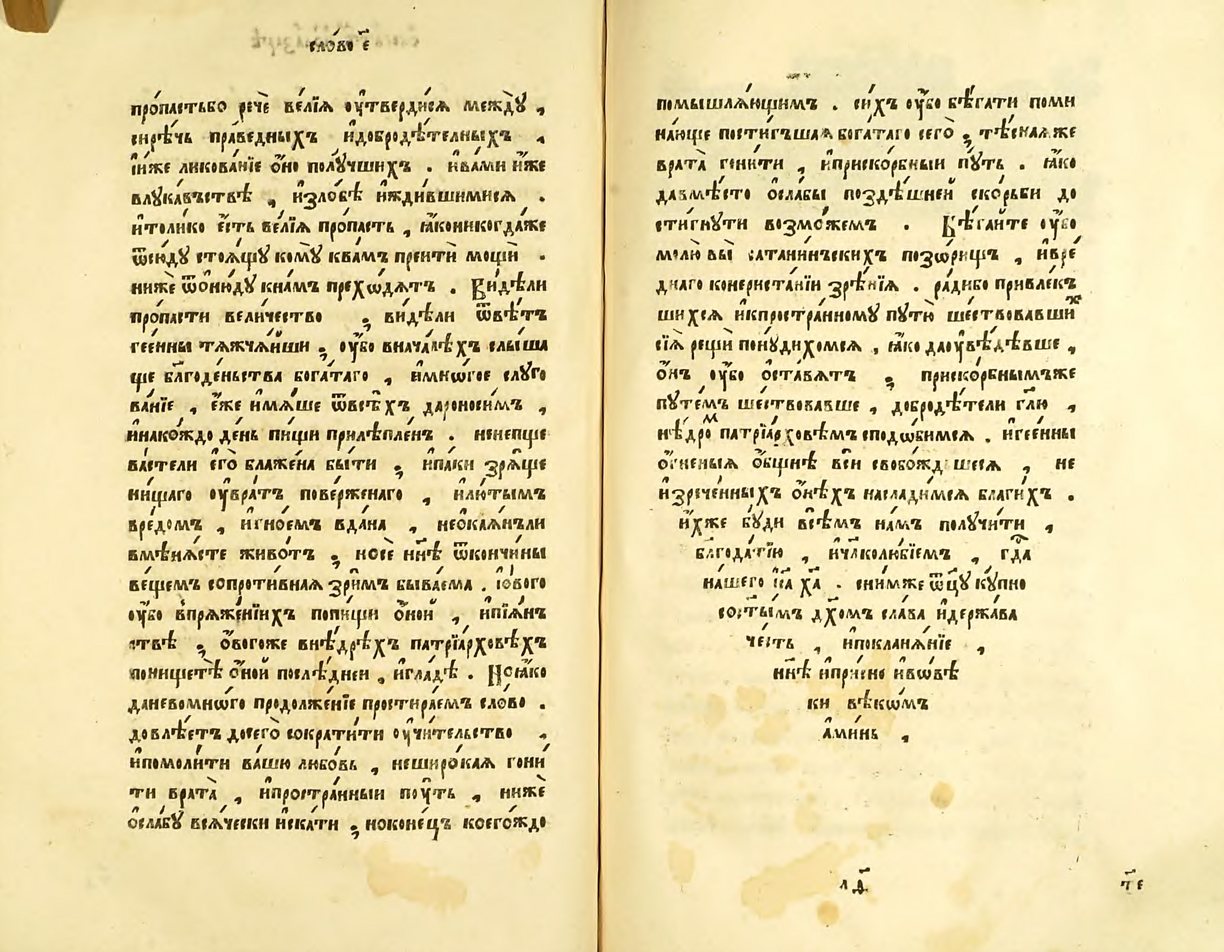 сло́во є҃
пропастьбо речѐ ве́лїѧ ѹ҆тверди́сѧ межд̀ꙋ ,
си́рѣчь пра́ведныхъ и҆добродѣ́телныхъ ,
и҆́иже ликова́нїе о҆но̀ полꙋ́чшихъ . и҆ва́ми и҆́же
влꙋка́въствѣ , и҆зло́бѣ и҆жди́вшимисѧ .
и҆толи́ко є҆́сть ве́лїѧ про́пасть , ꙗ҆́коникогда́же
ѿсю́дꙋ стоѧ́щꙋ комꙋ̀ ква́мъ преитѝ мо́щи .
нижѐ ѿо́нꙋдꙋ кна́мъ прехѡ́дѧтъ . Ви́дѣли
про́пасти вели́чество , ви́дѣли ѿвѣ́тъ
гее́нны тѧжча́иши , ѹ҆́бо внача́лѣхъ слы́ша
ще бл҃годе́ньства бога́таго , и҆мно́гое слꙋго
ва́нїе , є҆́же и҆мѧ́ше ѿвсѣ́хъ дароноси́мъ ,
и҆нако́ждо де́нь пи́щи прилѣпле́нъ . ненепще
ва́стели є҆го̀ блаже́на бы́ти , и҆па́ки зрѧ́ще
ни́щаго ѹ҆вра́тъ пове́рженаго , и҆лю́тымъ
вре́домъ , и҆гно́емъ вда́на , неѻ҆каѧ́нъли
вмѣнѧ́сте живо́тъ , носе нн҃ѣ ѿкончи́ны
ве́щемъ сопроти́внаѧ зри́мъ быва́ема . І҆о́вого
ѹ҆́бо впрѧже́нїихъ попи́щи о҆́ной , и҆пїѧ́н
ствѣ , ѻ҆во́гоже внѣ́дрѣхъ патрїа́рховѣхъ
понищетѣ̀ о҆́ной послѣ́днеи , и҆гла́дѣ . Но́ꙗко
даневомно́го продолже́нїе простира́емъ сло́во .
довлѣ́етъ досего̀ сократи́ти ѹ҆чи́тельство ,
и҆помоли́ти ва́шю любо́вь , неширо́каѧ гони
ти врата̀ , и҆простра́нныи пѹ́ть , нижѐ
ѻ҆сла́бꙋ всѧ́чески и҆ска́ти , ноконе́цъ коего́ждо
помышлѧ́ющимъ . си́хъ ѹ҆́бо бѣ́гати поми
на́юще пости́гъшаѧ бога́таго сего̀ , тѣ́снаѧже
врата̀ гони́ти , и҆приско́рбныи пꙋ́ть . ꙗ҆́ко
давмѣ́сто ѻ҆сла́бы поздѣ́шней ско́рьби до
сти́гнꙋти возмо́жем . Бѣ́гайте ѹ҆́бо
молю̀ вы̀ сатани́нъскихъ позѡ́рищъ , и҆вре́
днаго конериста́нїи зрѣ́нїѧ . ра́дибо привле́к
шихсѧ и҆кпростра́нномꙋ пꙋтю̀ ше́ствовавшиⷯ
сїѧ̀ рещѝ понꙋ́дихомсѧ , ꙗ҆́ко даѹ҆вѣ́дѣвше ,
о҆́нъ ѹ҆́бо ѻ҆ста́вѧтъ , приско́рбнымъже
пꙋте́мъ ше́ствовавше , добродѣ́тели гл҃ю ,
нѣ́дроⷨ патрїа́рховѣмъ сподѡ́бимсѧ . и҆гее́нны
о҆́гненыѧ ѻ҆́бщнѣ всѝ свобо́ждшесѧ , не
и҆зрече́нныхъ о҆́нѣхъ наслади́мсѧ благи́хъ .
и҆́хже бꙋ́ди всѣ́мъ на́мъ полꙋчи́ти ,
бл҃года́тїю , и҆чл҃колю́бїемъ , гд҃а
на́шего і҆с҃а х҃а . сни́мже ѿц҃ꙋ кꙋ́пно
сост҃ы́мъ дх҃омъ сла́ва и҆держа́ва
че́сть , и҆покланѧ́нїе ,
нн҃ѣ и҆при́сно и҆вѡ́вѣ
ки вѣкѡ́мъ
а҆ми́нь ,
л҃д
ч҃є